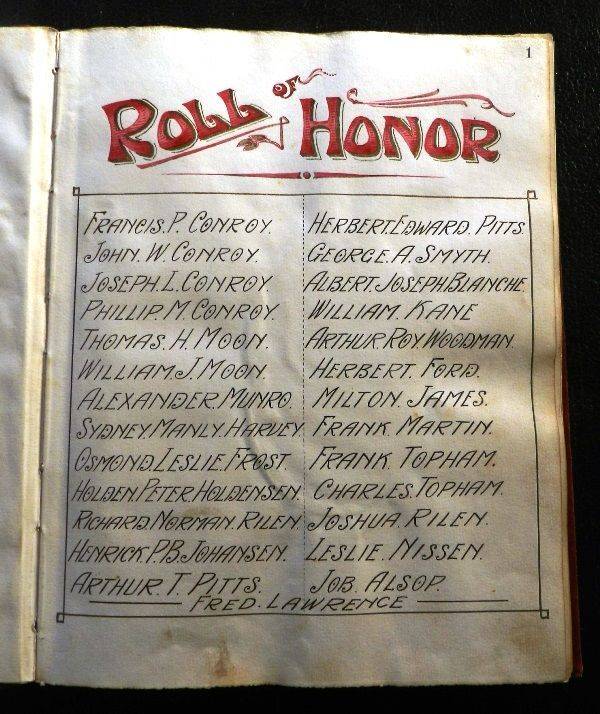 1
ROLL OF HONOR
FRANCIS. P. CONROY.
JOHN. W. CONROY.
JOSEPH. L. CONROY.
PHILLIP. M. CONROY.
THOMAS. H. MOON.
WILLIAM. J. MOON.
ALEXANDER. MUNRO.
SYDNEY. MANLY. HARVEY.
OSMOND. LESLIE. FROST.
HOLDEN. PETER. HOLDENSEN.
RICHARD. NORMAN. RILEN.
HENRICK. P.B. JOHANSEN.
ARTHUR. T. PITTS.
HERBERT. EDWARD. PITTS
GEORGE. A. SMYTH.
ALBERT. JOSEPH. BLANCHE.
WILLIAM. KANE
ARTHUR. ROY. WOODMAN.
HERBERT. FORD.
MILTON. JAMES.
FRANK. MARTIN.
FRANK. TOPHAM.
CHARLES. TOPHAM.
JOSHUA. RILEN.
LESLIE. NISSEN.
JOB. ALSOP.
FRED. LAWRENCE